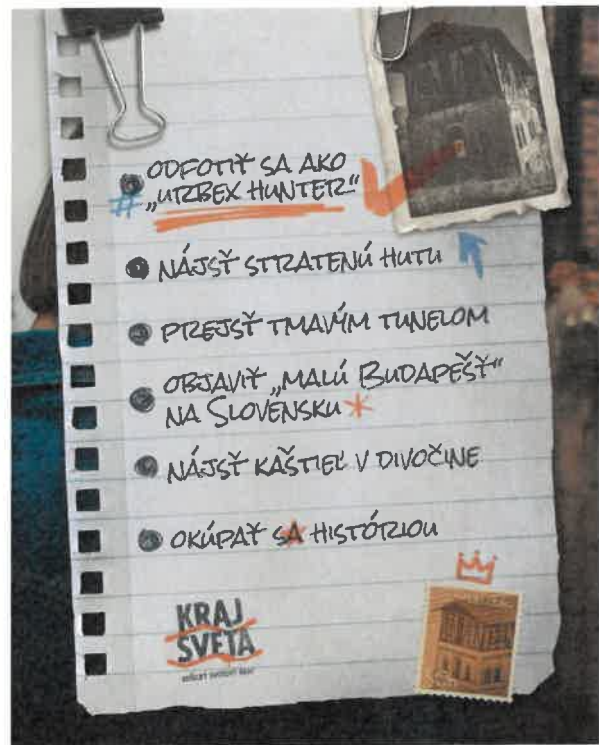 ODFOTIŤ SA AKO
„URBEX HUNTER“
NÁJSŤ STRATENÚ HUTU
PREJSŤ TMAVÝM TUNELOM
OBJAVIŤ „MALÚ BUDAPEŠŤ“
NA SLOVENSKU *
NÁJSŤ KAŠTIEĽ V DIVOČINE
OKÚPAŤ SA HISTÓRIOU
KRAJ
SVETA
KOŠICKÝ SAMOSPRÁVNY KRAJ